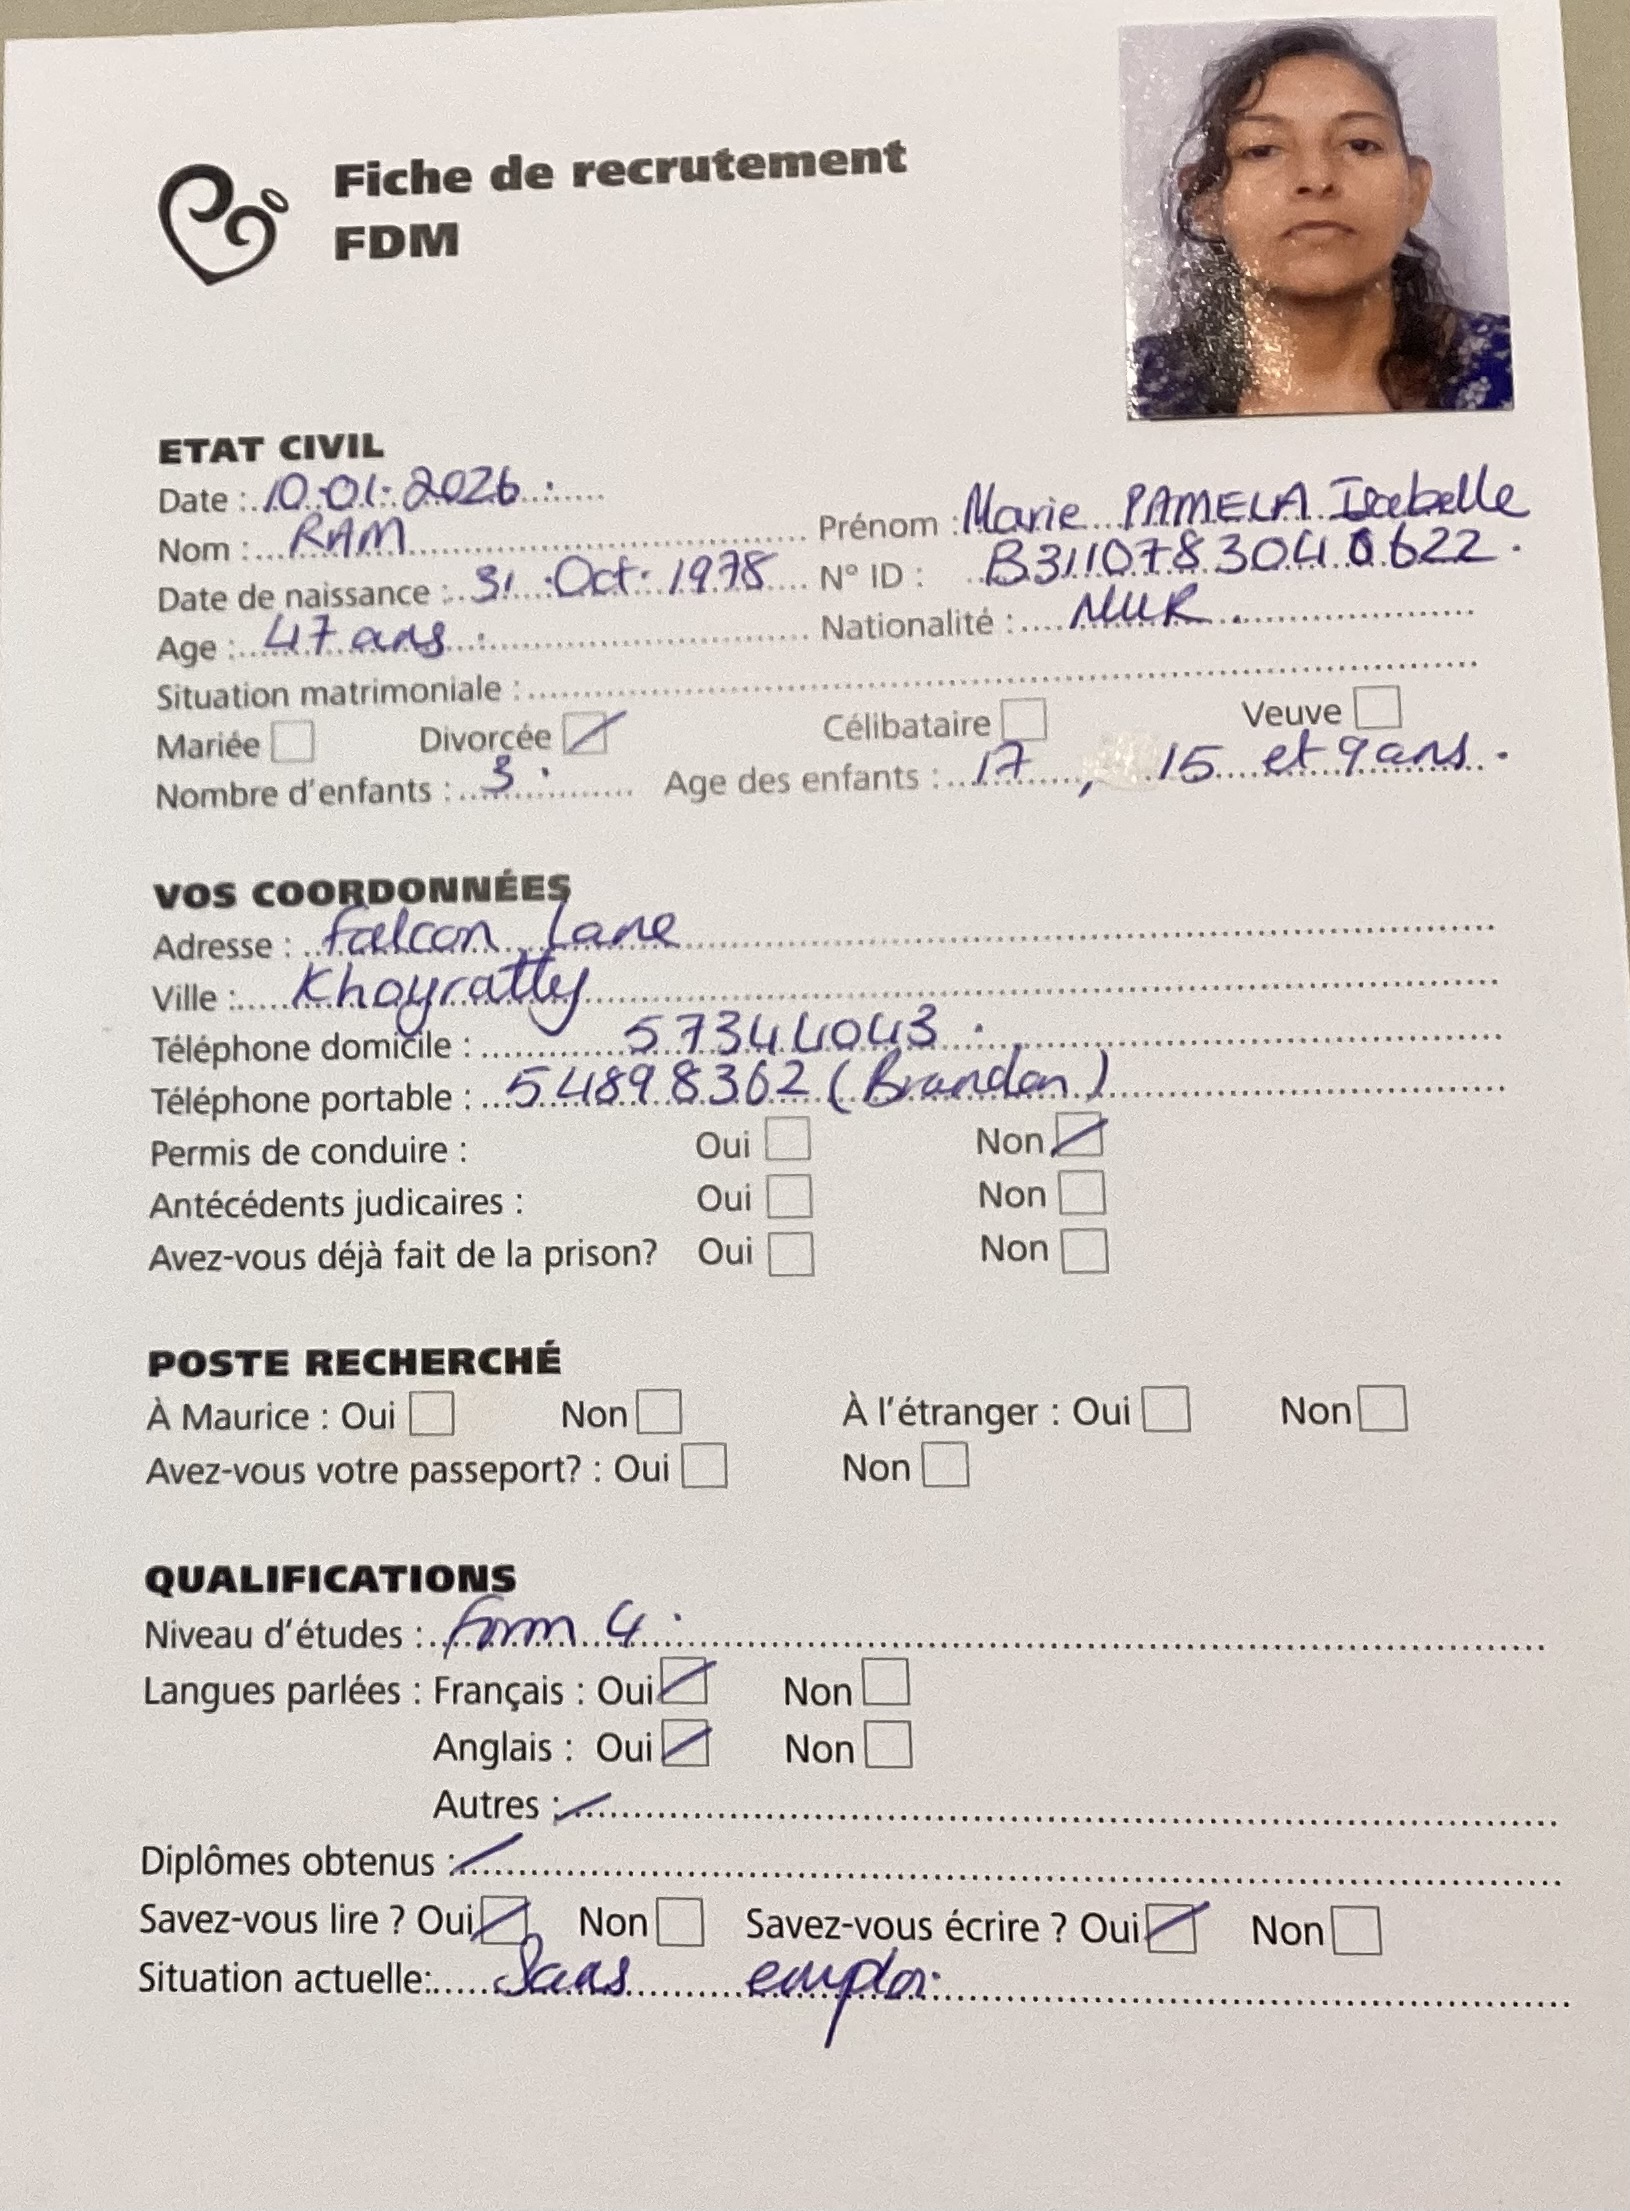 Fiche de recrutement
FDM
ETAT CIVIL
Date : 10.01.2026.
Nom : RAM Prénom : Marie PAMELA Isabelle
Date de naissance : 31 Oct. 1978 N° ID : B3110783040622.
Age : 47 ans. Nationalité : MUR.
Situation matrimoniale :
Mariée Divorcée Célibataire Veuve
Nombre d'enfants : 3. Age des enfants : 17, 15 et 9 ans.
VOS COORDONNÉES
Adresse : Falcon Lane
Ville : Khoyratty
Téléphone domicile : 57344043.
Téléphone portable : 54898362 (Brandon)
Permis de conduire : Oui Non
Antécédents judicaires : Oui Non
Avez-vous déjà fait de la prison? Oui Non
POSTE RECHERCHÉ
À Maurice : Oui Non À l'étranger : Oui Non
Avez-vous votre passeport? : Oui Non
QUALIFICATIONS
Niveau d'études : Form 4.
Langues parlées : Français : Oui Non
Anglais : Oui Non
Autres :
Diplômes obtenus :
Savez-vous lire ? Oui Non Savez-vous écrire ? Oui Non
Situation actuelle: Sans emploi